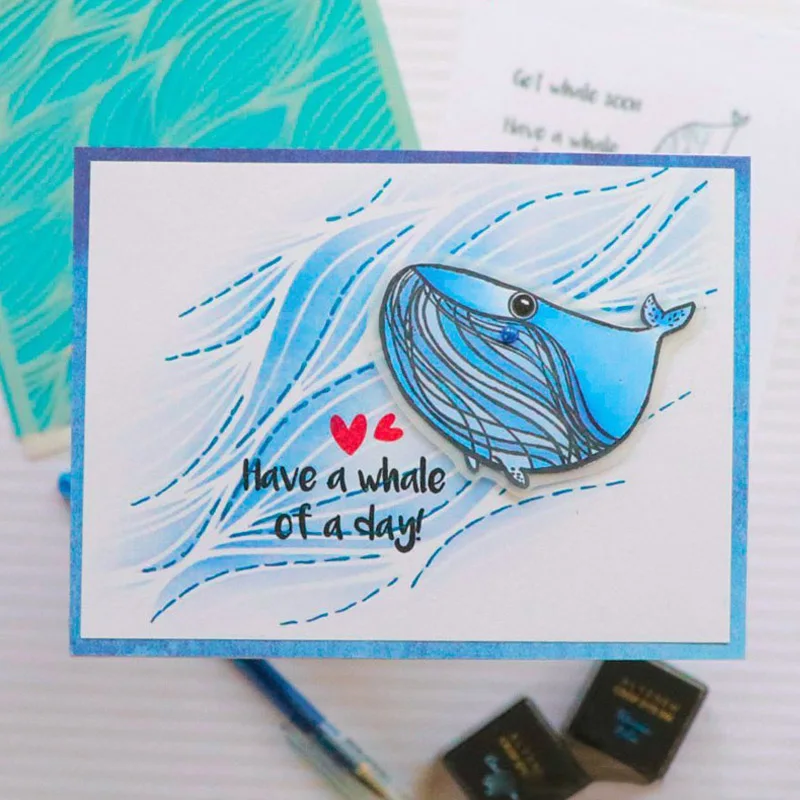 Get whale soon
Have a whale
Have a whale
of a day!